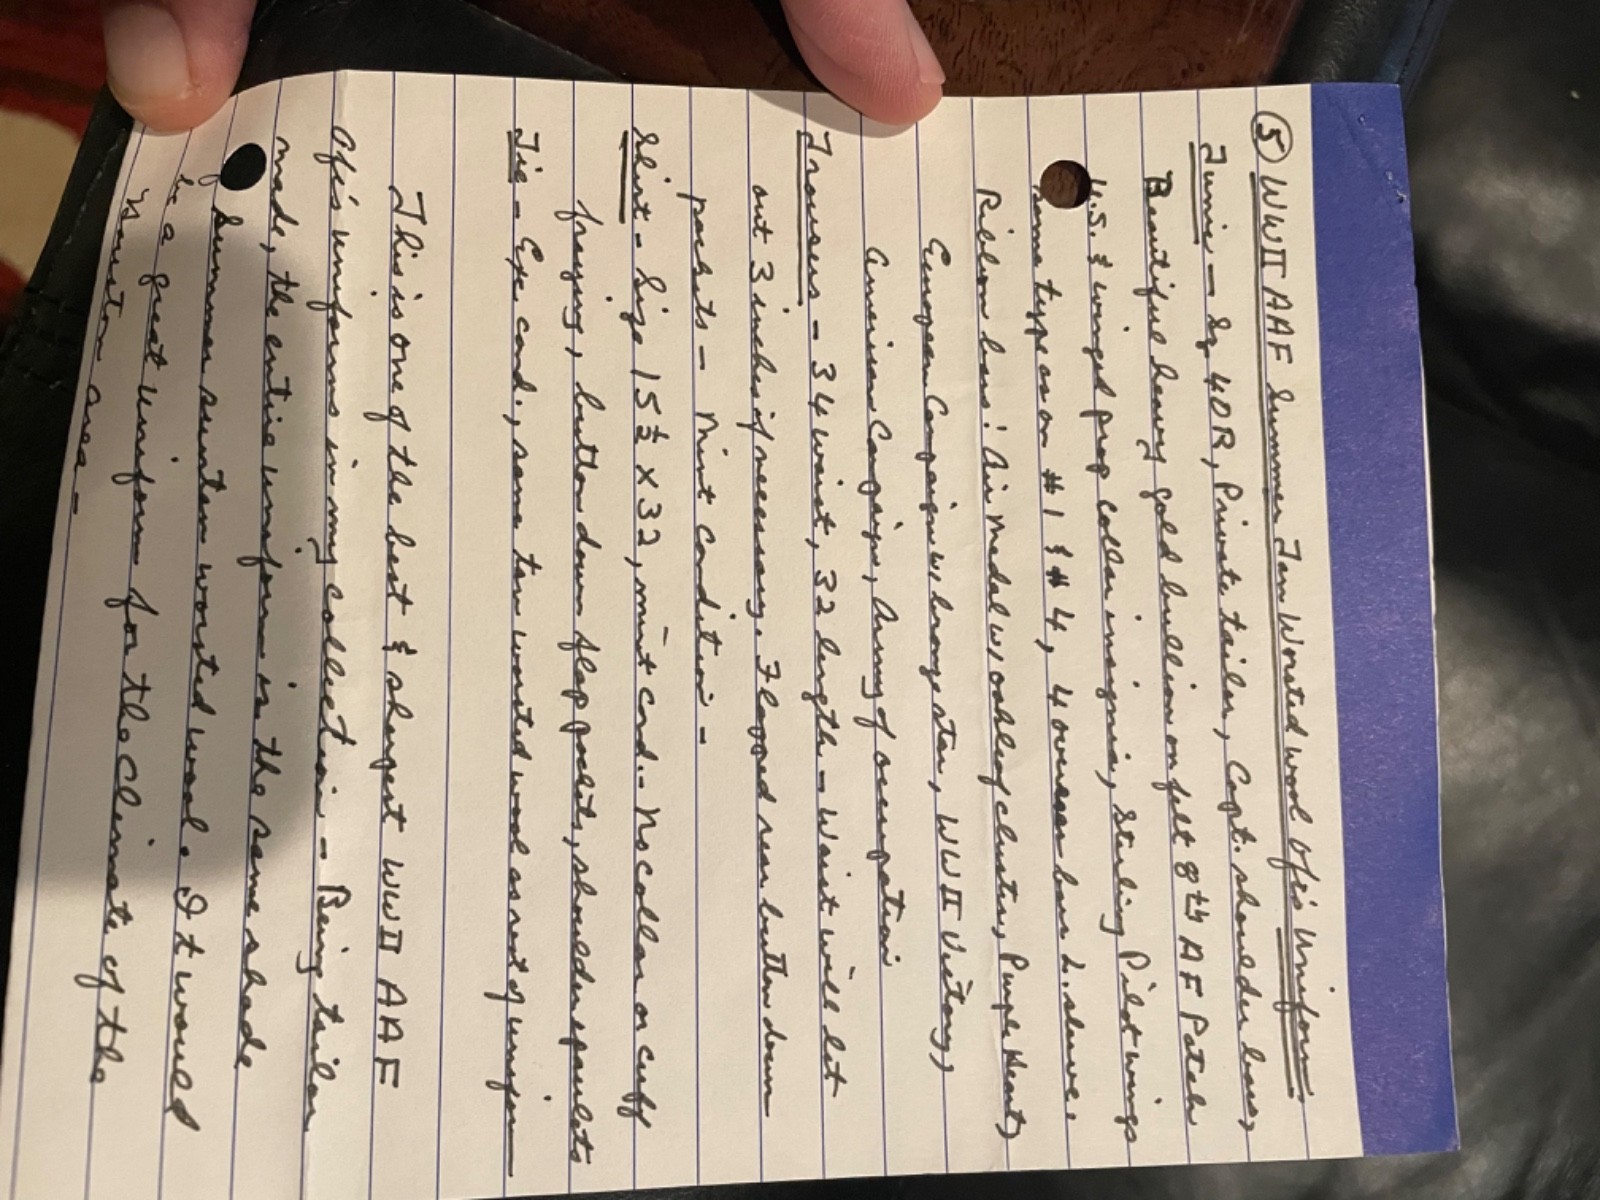 ⑤ WWII AAF Summer Tan Worsted wool Ofc's Uniform
Tunic — Sz 40R, Private tailor, Capt. shoulder bars,
Beautiful heavy gold bullion on felt 8th AF Patch
U.S. & winged prop collar insignia, Sterling Pilot wings
same type as on #1 & #4, 4 overseas bars L. sleeve.
Ribbon bars: Air Medal w/ oakleaf clusters, Purple Heart,
European Campaign w/ bronze star, WWII Victory,
American Campaign, Army of occupation
Trousers - 34 waist, 32 length - Waist will let
out 3 inches if necessary. Flapped rear button down
pockets - Mint condition -
Shirt - Size 15½ x 32, mint cond. - No collar or cuff
fraying, button down flap pockets, shoulder epaulets
Tie - Exc cond., same tan worsted wool as rest of uniform
This is one of the best & sharpest WWII AAF
Ofc's uniforms in my collection - Being tailor
made, the entire uniform is the same shade
summer suntan worsted wool. It would
be a great uniform for the climate of the
Houston area -